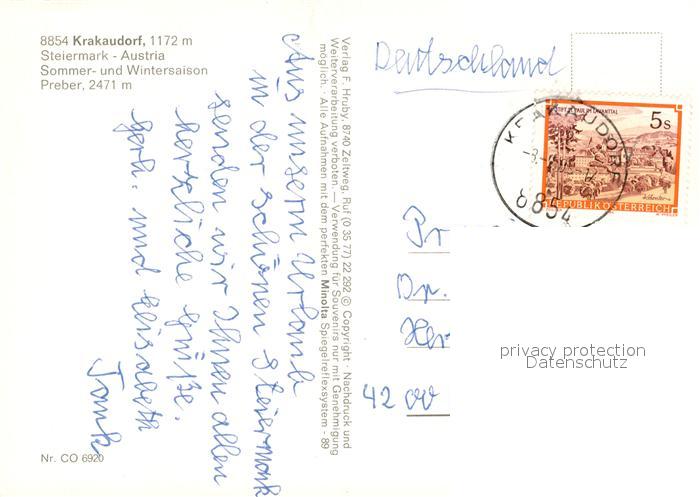 8854 Krakaudorf, 1172 m
Steiermark - Austria
Sommer- und Wintersaison
Preber, 2471 m
Aus unserm Urlaub
in der schönen Steiermark
senden wir Ihnen allen
herzliche Grüße.
Gerh. und Elisabeth
Nr. CO 6920
Verlag F. Hruby, 8740 Zeltweg, Ruf (0 35 77) 22 292 © Copyright - Nachdruck und
Weiterverarbeitung verboten. — Verwendung für Souvenirs nur mit Genehmigung
möglich. · Alle Aufnahmen mit dem perfekten Minolta Spiegelreflexsystem - 89
Deutschland
STIFT ST. PAUL IM LAVANTTAL
5 s
REPUBLIK ÖSTERREICH
KRAKAUDORF
8854
Pr
Dr.
Her
42 00
privacy protection
Datenschutz